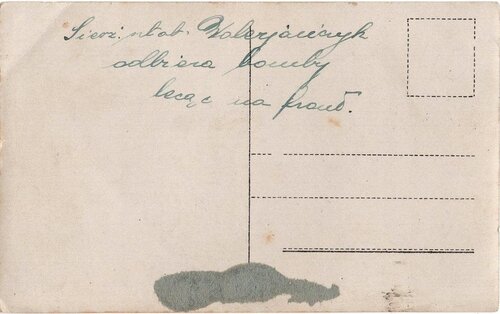 Sierż. Walerjańczyk
odbiera bomby
lecąc na front.